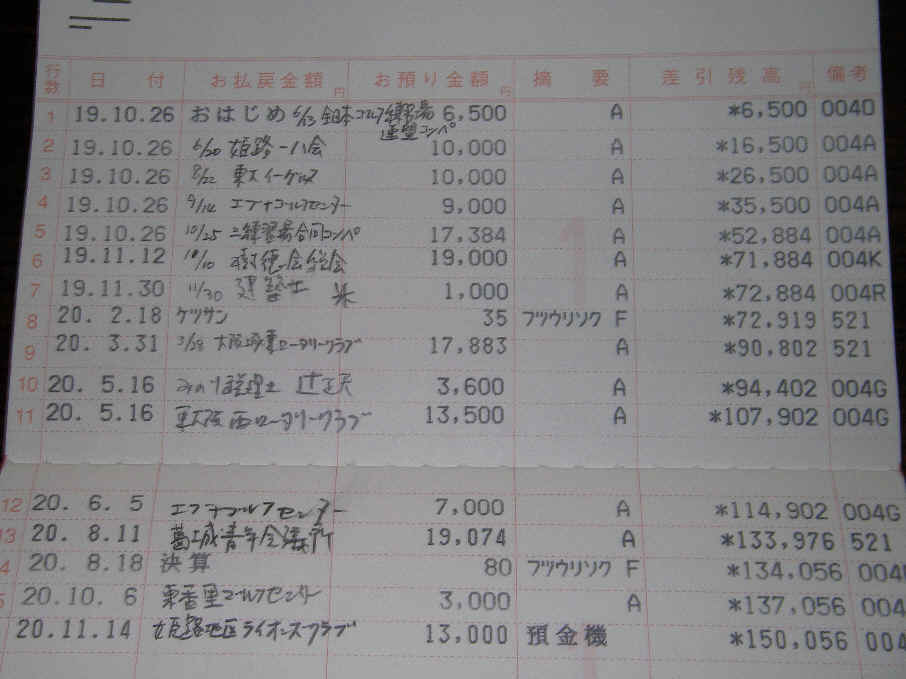 行数 日 付 お払戻金額 円 お預り金額 円 摘 要 差引残高 円 備考
1 19.10.26 おはじめ 6/13 全日本ゴルフ練習場連盟コンペ 6,500 A *6,500 0040
2 19.10.26 6/20 姫路一八会 10,000 A *16,500 004A
3 19.10.26 8/22 イーグルス 10,000 A *26,500 004A
4 19.10.26 9/ エフナゴルフセンター 9,000 A *35,500 004A
5 19.10.26 10/25 三練習場合同コンペ 17,384 A *52,884 004A
6 19.11.12 10/10 樹徳会総会 19,000 A *71,884 004K
7 19.11.30 11/30 建築士 1,000 A *72,884 004R
8 20. 2.18 ケツサン 35 フツウリソク F *72,919 521
9 20. 3.31 3/28 大阪城東ロータリークラブ 17,883 A *90,802 521
10 20. 5.16 みのり税理士 3,600 A *94,402 004G
11 20. 5.16 東大阪西ロータリークラブ 13,500 A *107,902 004G
12 20. 6. 5 エフナゴルフセンター 7,000 A *114,902 004G
13 20. 8.11 葛城青年会議所 19,074 A *133,976 521
4 20. 8.18 決算 80 フツウリソク F *134,056 004
5 20.10. 6 東香里ゴルフセンター 3,000 A *137,056 004
20.11.14 姫路地区ライオンズクラブ 13,000 預金機 *150,056 004